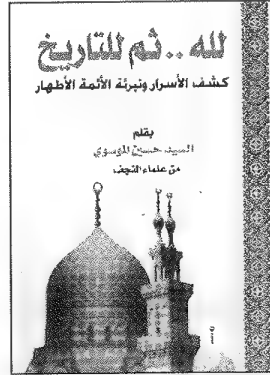 لله .. ثم للتاريخ
كشف الأسرار وتبرئة الأئمة الأطهار
بقلم
السيد حسين الموسوي
من علماء النجف